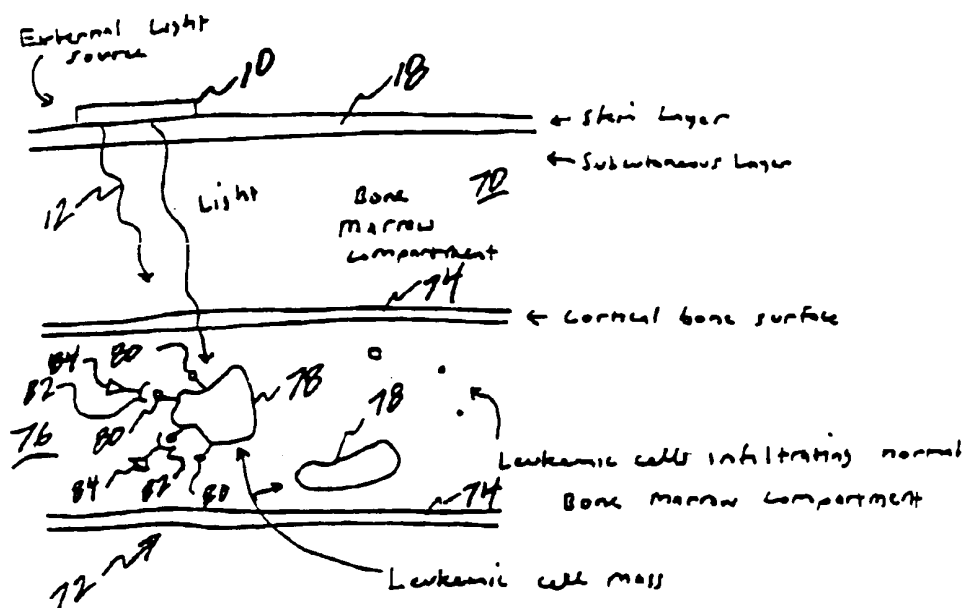 External Light
source
10
18
← Skin Layer
← Subcutaneous Layer
70
12
Light
Bone
Marrow
compartment
74
← Cortical bone surface
84
80
82
78
80
78
76
84
82
80
Leukemic cells infiltrating normal
Bone Marrow compartment
74
72
Leukemic cell mass